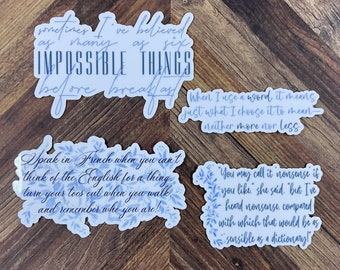 sometimes I've believed
as many as six
IMPOSSIBLE THINGS
before breakfast
When I use a word, it means
just what I choose it to mean—
neither more nor less.
Speak in French when you can't
think of the English for a thing,
turn your toes out when you walk
and remember who you are!
"You may call it nonsense if
you like," she said, "but I've
heard nonsense, compared
with which that would be as
sensible as a dictionary!